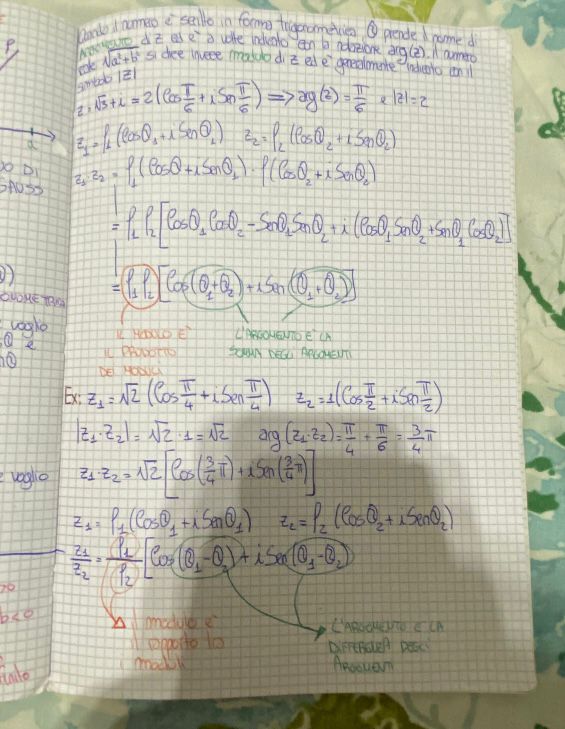 Quando il numero è scritto in forma trigonometrica θ prende il nome di
ARGOMENTO di z ed è a volte indicato con la notazione arg(z). Il numero
reale √a²+b² si dice invece modulo di z ed è generalmente indicato con il
simbolo |z|
z=√3+i = 2(Cos π/6 + i Sen π/6) => arg(z)=π/6 e |z|=2
z₁=ρ₁(Cosθ₁+iSenθ₁) z₂=ρ₂(Cosθ₂+iSenθ₂)
z₁·z₂=ρ₁(Cosθ+iSenθ₁)·ρ(Cosθ₂+iSenθ₂)
=ρ₁ρ₂[Cosθ₁Cosθ₂-Senθ₁Senθ₂+i(Cosθ₁Senθ₂+Senθ₁Cosθ₂)]
=ρ₁ρ₂[Cos(θ₁+θ₂)+iSen(θ₁+θ₂)]
IL MODULO È
IL PRODOTTO
DEI MODULI
L'ARGOMENTO È LA
SOMMA DEGLI ARGOMENTI
Ex: z₁=√2(Cos π/4+iSen π/4) z₂=1(Cos π/2+iSen π/2)
|z₁·z₂|=√2·1=√2 arg(z₁·z₂)=π/4+π/6=3/4π
z₁·z₂=√2[Cos(3/4π)+iSen(3/4π)]
z₁=ρ₁(Cosθ₁+iSenθ₁) z₂=ρ₂(Cosθ₂+iSenθ₂)
z₁/z₂=ρ₁/ρ₂[Cos(θ₁-θ₂)+iSen(θ₁-θ₂)
il modulo è
il rapporto tra
i moduli
L'ARGOMENTO È LA
DIFFERENZA DEGLI
ARGOMENTI
P
a
DI
GAUSS
voglio
θ e
voglio
b<0